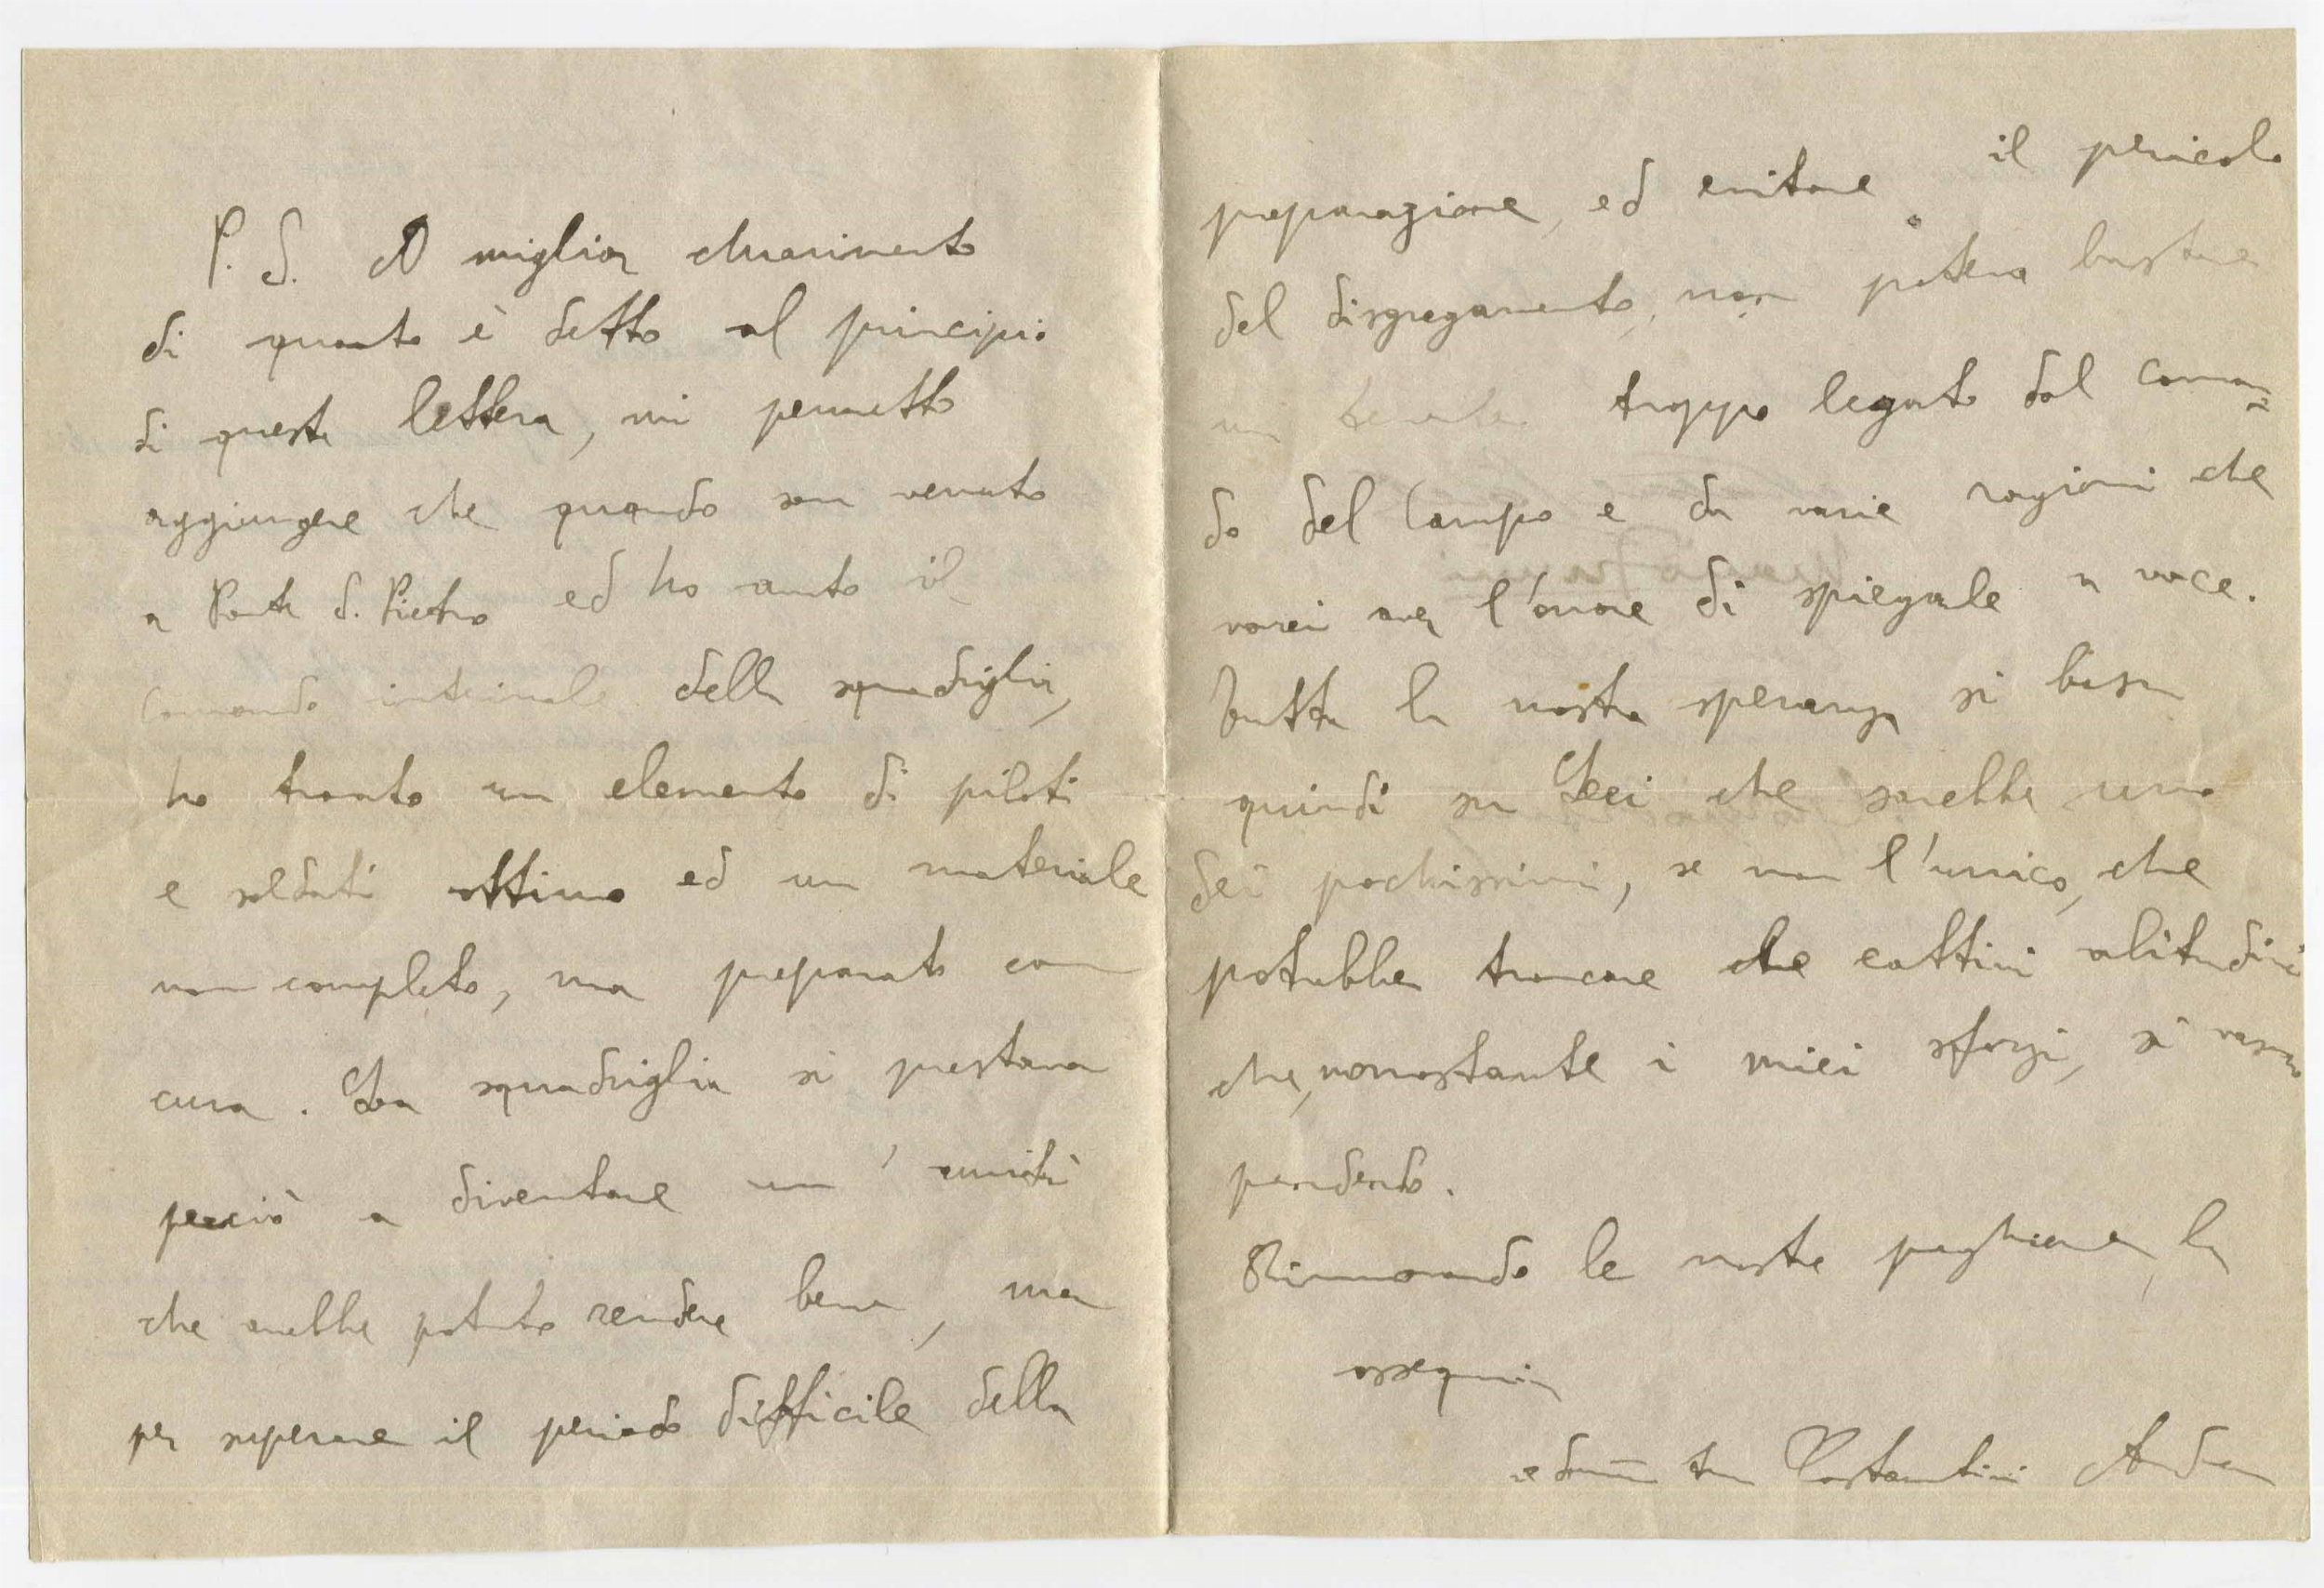 P. S. A miglior chiarimento
di quanto è detto al principio
di questa lettera, mi permetto
aggiungere che quando son venuto
a Ponte S. Pietro ed ho avuto il
Comando interinale della squadriglia,
ho trovato un elemento di piloti
e soldati ottimo ed un materiale
non completo, ma preparato con
cura. La squadriglia si prestava
perciò a diventare un' unità
che avrebbe potuto rendere bene, ma
per superare il periodo difficile della
preparazione, ed evitare il pericolo
del disgregamento, non poteva bastare
un tenente troppo legato dal coman=
do del Campo e da varie ragioni che
vorrei aver l'onore di spiegarle a voce.
Tutta la nostra speranza si basa
quindi su Lei che sarebbe uno
dei pochissimi, se non l'unico, che
potrebbe troncare le cattive abitudini
che, nonostante i miei sforzi, si vanno
prendendo.
Rinnovando le nostre preghiere, la
ossequia
Costantini Andrea